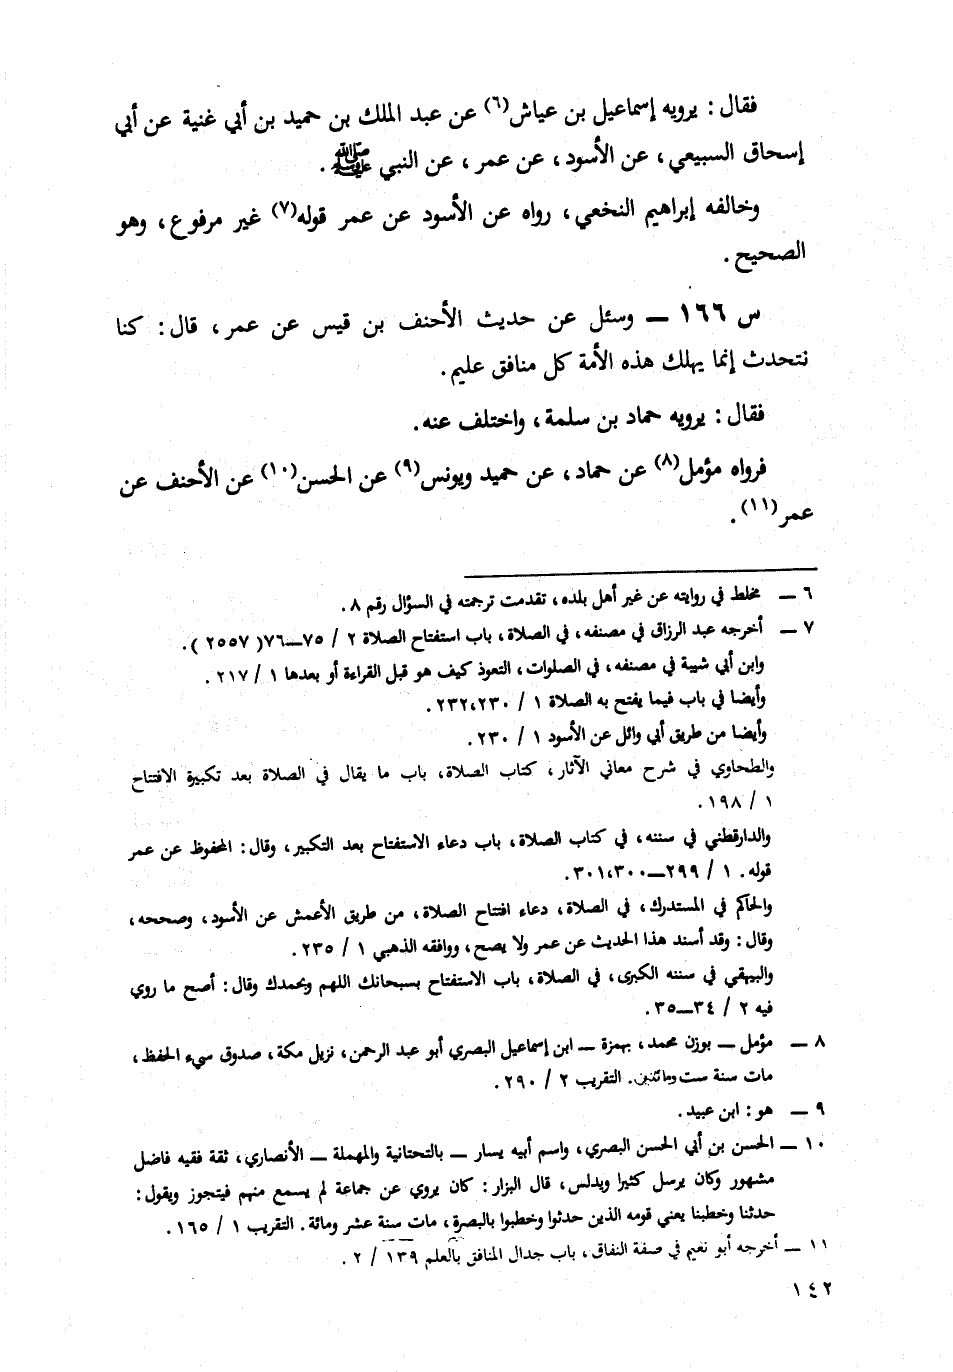 فقال : يرويه إسماعيل بن عياش(٦) عن عبد الملك بن حميد بن أبي غنية عن أبي
إسحاق السبيعي ، عن الأسود ، عن عمر ، عن النبي ﷺ .
وخالفه إبراهيم النخعي ، رواه عن الأسود عن عمر قوله(٧) غير مرفوع ، وهو
الصحيح .
س ١٦٦ ــ وسئل عن حديث الأحنف بن قيس عن عمر ، قال : كنا
نتحدث إنما يهلك هذه الأمة كل منافق عليم .
فقال : يرويه حماد بن سلمة ، واختلف عنه .
فرواه مؤمل(٨) عن حماد ، عن حميد ويونس(٩) عن الحسن(١٠) عن الأحنف عن
عمر(١١) .
٦ ــ مخلط في روايته عن غير أهل بلده ، تقدمت ترجمته في السؤال رقم ٨ .
٧ ــ أخرجه عبد الرزاق في مصنفه ، في الصلاة ، باب استفتاح الصلاة ٢ / ٧٥ــ٧٦( ٢٥٥٧ ) .
وابن أبي شيبة في مصنفه ، في الصلوات ، التعوذ كيف هو قبل القراءة أو بعدها ١ / ٢١٧ .
وأيضا في باب فيما يفتح به الصلاة ١ / ٢٣٢،٢٣٠ .
وأيضا من طريق أبي وائل عن الأسود ١ / ٢٣٠ .
والطحاوي في شرح معاني الآثار ، كتاب الصلاة ، باب ما يقال في الصلاة بعد تكبيرة الافتتاح
١ / ١٩٨ .
والدارقطني في سننه ، في كتاب الصلاة ، باب دعاء الاستفتاح بعد التكبير ، وقال : المحفوظ عن عمر
قوله . ١ / ٢٩٩ــ٣٠١،٣٠٠ .
والحاكم في المستدرك ، في الصلاة ، دعاء افتتاح الصلاة ، من طريق الأعمش عن الأسود ، وصححه ،
وقال : وقد أسند هذا الحديث عن عمر ولا يصح ، ووافقه الذهبي ١ / ٢٣٥ .
والبيهقي في سننه الكبرى ، في الصلاة ، باب الاستفتاح بسبحانك اللهم وبحمدك وقال : أصح ما روي
فيه ٢ / ٣٤ــ٣٥ .
٨ ــ مؤمل ــ بوزن محمد ، بهمزة ــ ابن إسماعيل البصري أبو عبد الرحمن ، نزيل مكة ، صدوق سيء الحفظ ،
مات سنة ست ومائتين . التقريب ٢ / ٢٩٠ .
٩ ــ هو : ابن عبيد .
١٠ ــ الحسن بن أبي الحسن البصري ، واسم أبيه يسار ــ بالتحتانية والمهملة ــ الأنصاري ، ثقة فقيه فاضل
مشهور وكان يرسل كثيرا ويدلس ، قال البزار : كان يروي عن جماعة لم يسمع منهم فيتجوز ويقول :
حدثنا وخطبنا يعني قومه الذين حدثوا وخطبوا بالبصرة ، مات سنة عشر ومائة . التقريب ١ / ١٦٥ .
١١ ــ أخرجه أبو نعيم في صفة النفاق ، باب جدال المنافق بالعلم ١٣٩ / ٢ .
١٤٢